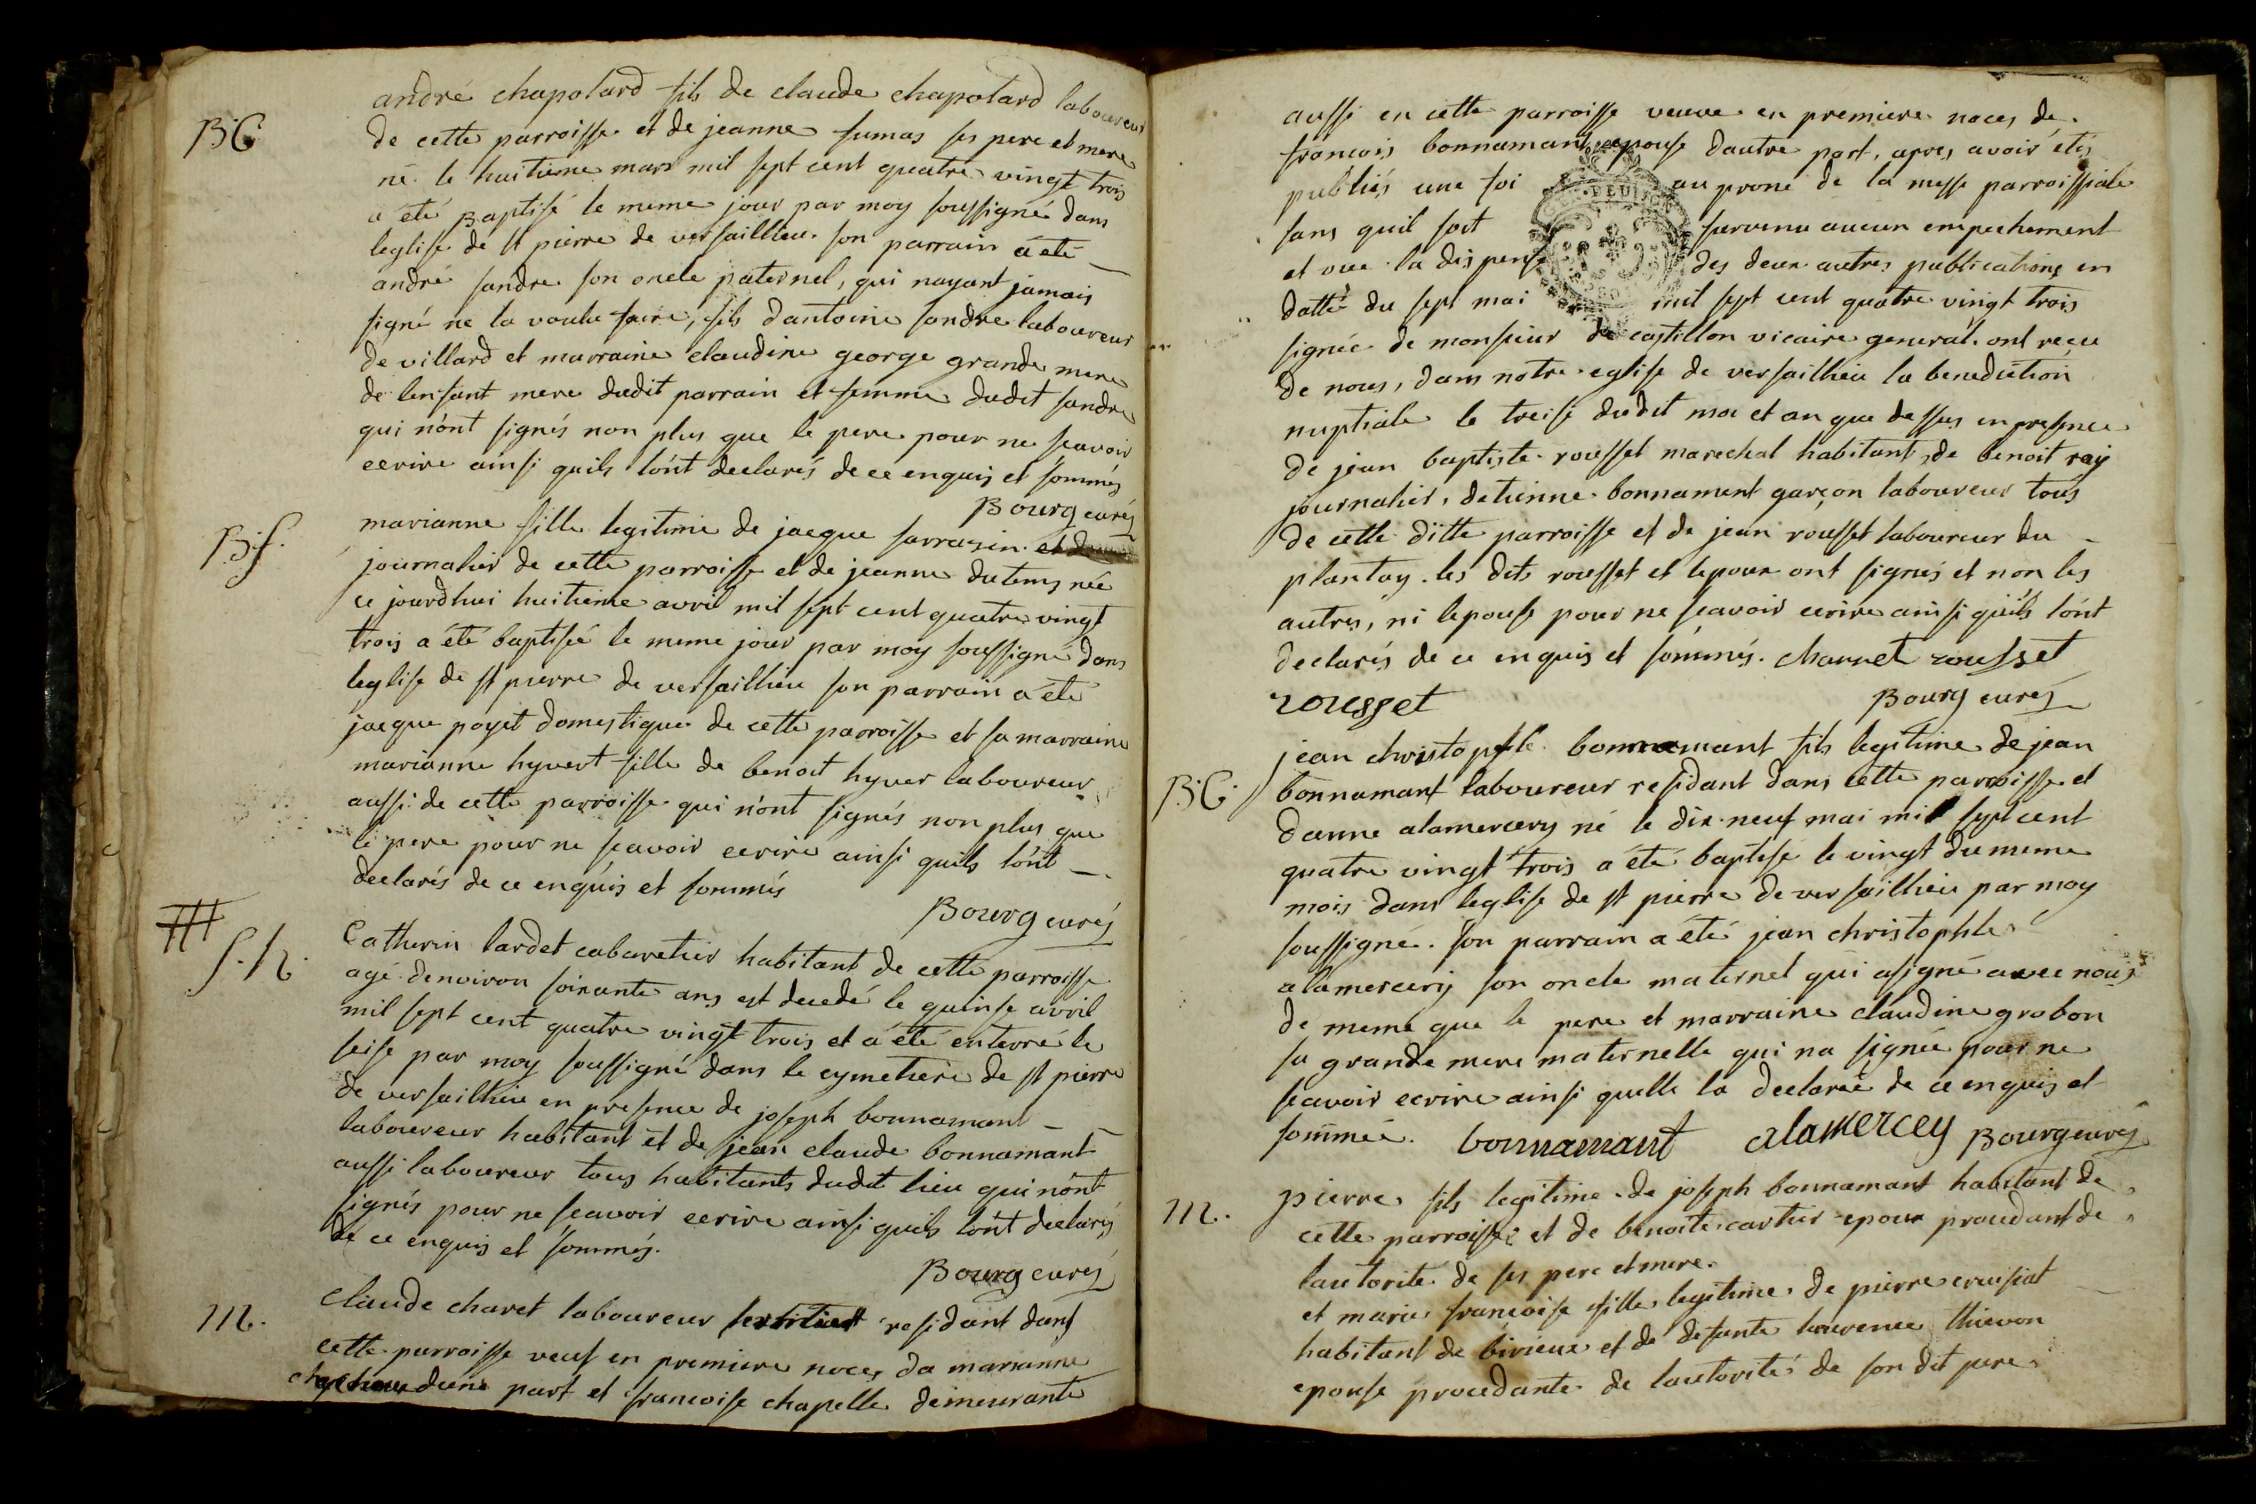 B.G.
andré chapolard fils de claude chapolard laboureur
de cette parroisse et de jeanne fumas ses pere et mere
né le huitieme mars mil sept cent quatre vingt trois
a été Baptisé le meme jour par moy soussigné dans
leglise de st pierre de versaillieu. son parrain a été
andré sandre son oncle paternel, qui nayant jamais
signé ne la voulu faire, fils dantoine sandre laboureur
de villard et marraine claudine george grande mere
de lenfant mere dudit parrain et femme dudit sandre
qui n'ont signés non plus que le pere pour ne scavoir
ecrire ainsi quils l'ont declarés de ce enquis et sommés
Bourg curé
B.f.
marianne fille legitime de jacque sarrasin et de
journalier de cette parroisse et de jeanne dutems née
ce jourdhui huitieme avril mil sept cent quatre vingt
trois a été baptisée le meme jour par moy soussigné dans
leglise de st pierre de versaillieu son parrain a été
jacque poyet domestique de cette parroisse et sa marraine
marianne hyvert fille de benoit hyver laboureur
aussi de cette parroisse qui n'ont signés non plus que
le pere pour ne scavoir ecrire ainsi quils l'ont
declarés de ce enquis et sommés
Bourg curé
S.h.
Catherin lardet cabaretier habitant de cette parroisse
agé denviron soixante ans est decedé le quinse avril
mil sept cent quatre vingt trois et a été enterré le
seise par moy soussigné dans le cymetiere de st pierre
de versaillieu en presence de joseph bonnamant
laboureur habitant et de jean claude bonnamant
aussi laboureur tous habitants dudit lieu qui n'ont
signés pour ne scavoir ecrire ainsi quils l'ont declarés
de ce enquis et sommés.
Bourg curé
M.
claude charet laboureur residant dans
cette parroisse veuf en premiere noces da marianne
dune part et francoise chapelle demeurante
aussi en cette parroisse veuve en premiere noces de
francois bonnamant epouse dautre part, apres avoir étés
publiés une foi au prone de la messe parroissiale
sans quil soit survenu aucun empechement
et vue la dispense des deux autres publications en
datte du sept mai mil sept cent quatre vingt trois
signée de monsieur de castillon vicaire general. ont recu
de nous, dans notre eglise de versaillieu la benediction
nuptiale le treise dudit moi et an que dessus en presence
de jean baptiste rousset marechal habitant, de benoit ray
journalier, detienne bonnament garçon laboureur tous
de cette ditte parroisse et de jean rousset laboureur du
plantay. les dits rousset et lepoux ont signés et non les
autres, ni lepouse pour ne scavoir ecrire ainsi quils l'ont
declarés de ce enquis et sommés. charret rousset
rousset Bourg curé
B.G.
jean christophle bonnamant fils legitime de jean
bonnamant laboureur residant dans cette parroisse et
danne alamercery né le dix neuf mai mil sept cent
quatre vingt trois a été baptisé le vingt du meme
mois dans leglise de st pierre de versaillieu par moy
soussigné. son parrain a été jean christophle
alamercery son oncle maternel qui a signé avec nous
de meme que le pere et marraine claudine grobon
sa grande mere maternelle qui na signée pour ne
scavoir ecrire ainsi quelle la declarée de ce enquis et
sommée. bonnamant alamercey Bourg curé
M.
pierre fils legitime de joseph bonnamant habitant de
cette parroisse et de benoite cartier epoux procedant de
lautorité de ses pere et mere.
et marie francoise fille legitime de pierre cruisiat
habitant de birieux et de defunte laurence thievon
epouse procedante de lautorité de son dit pere